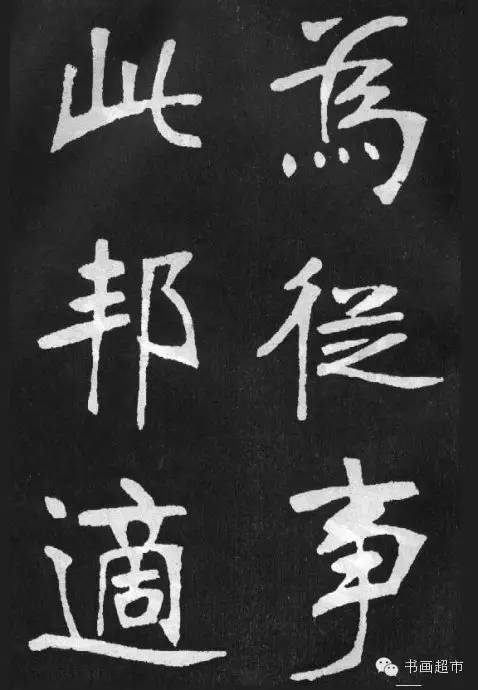 為從事
此邦適
书画超市